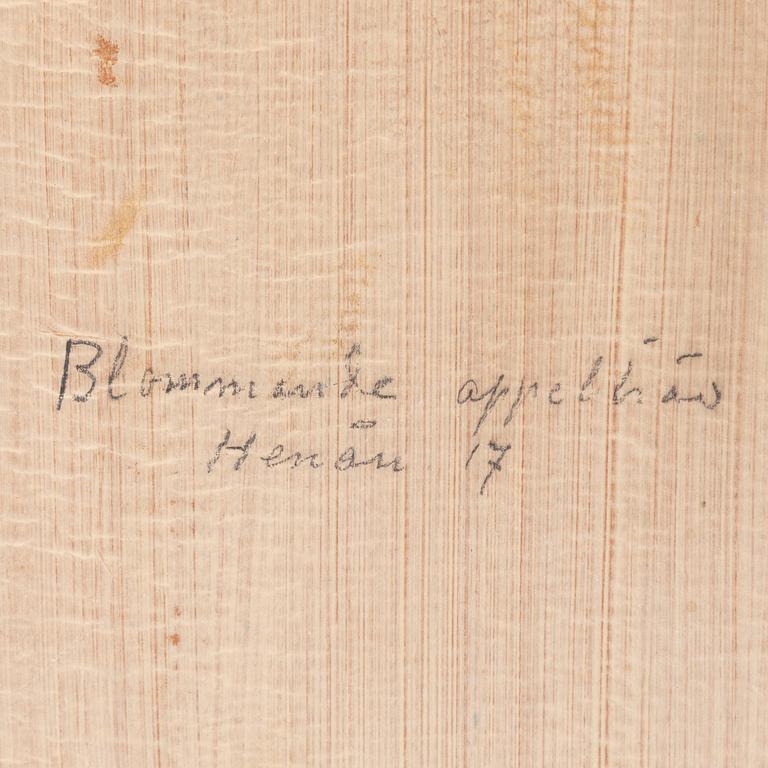 Blommande appelträd
Henån 17